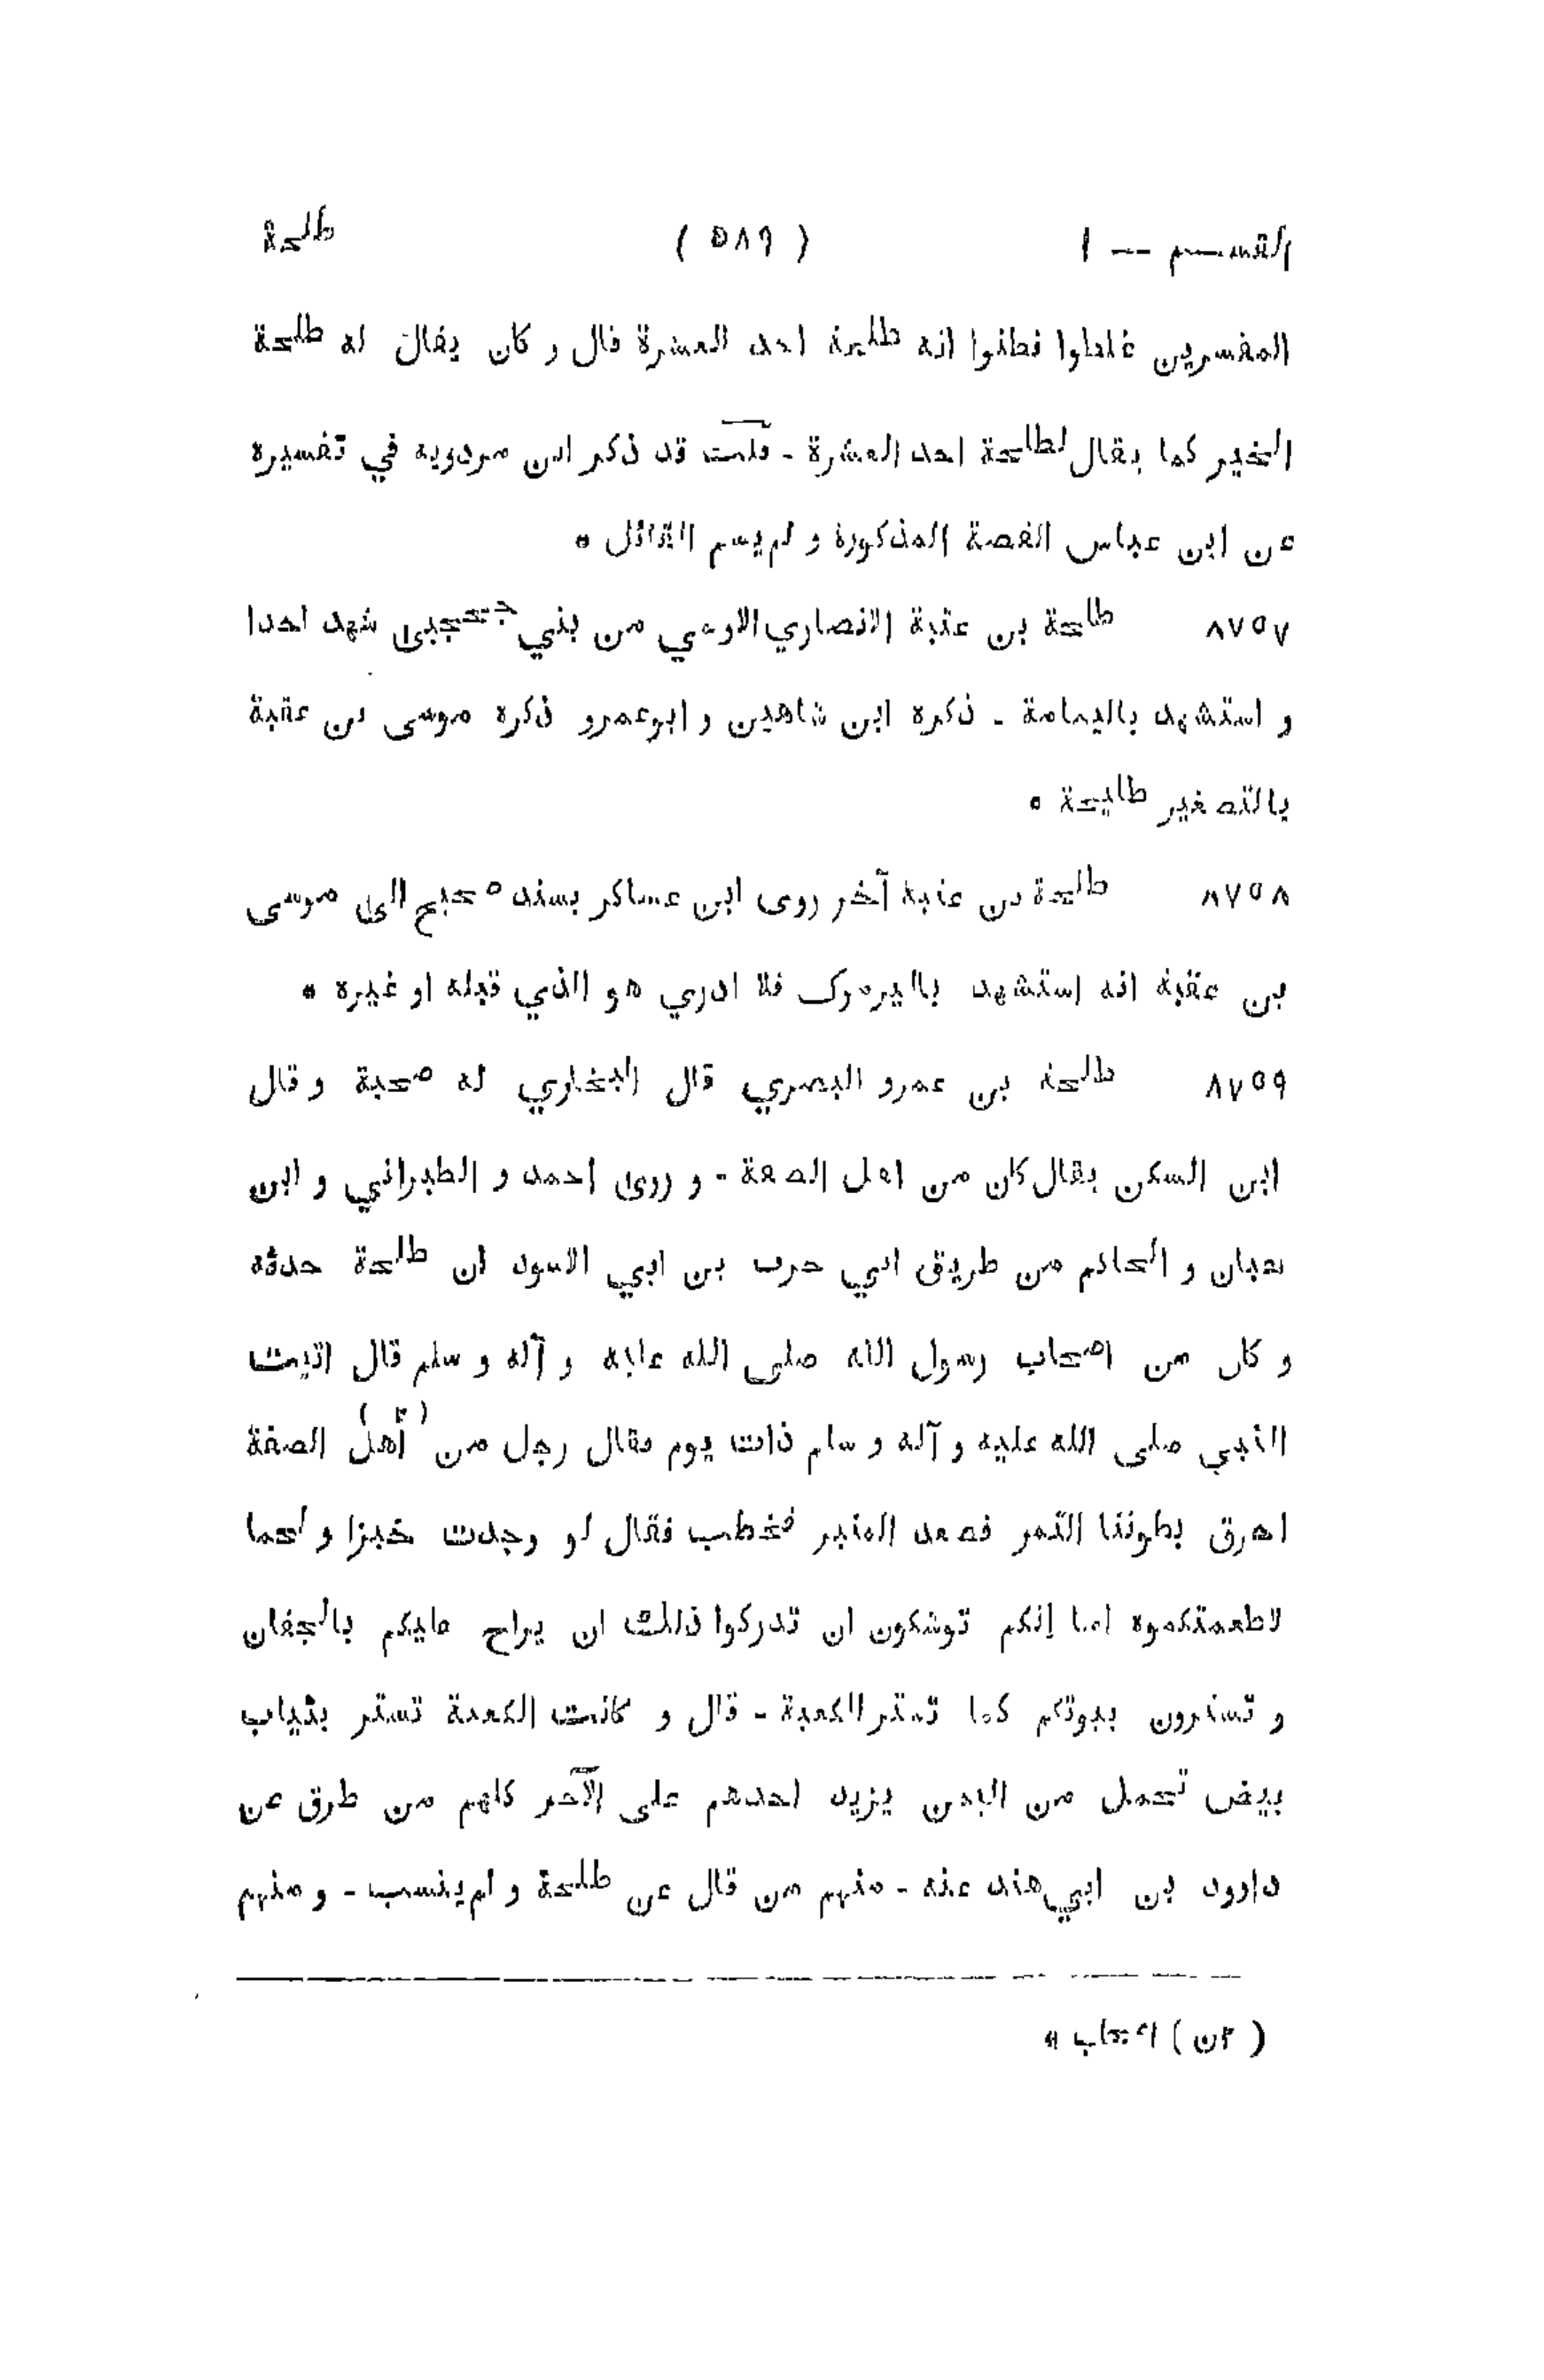 القسم — ١ ( ٥٨٩ ) طلحة
المفسرين غلطوا فظنوا انه طلحة احد العشرة قال و كان يقال له طلحة
الخير كما يقال لطلحة احد العشرة - قلت قد ذكر ابن مردويه في تفسيره
عن ابن عباس القصة المذكورة و لم يسم القائل *
٨٧٥٧ طلحة بن عتبة الانصاري الاوسي من بني جحجبى شهد احدا
و استشهد باليمامة - ذكره ابن شاهين و ابوعمرو ذكره موسى بن عقبة
بالتصغير طليحة *
٨٧٥٨ طلحة بن عتبة آخر روى ابن عساكر بسند صحيح الى موسى
بن عقبة انه استشهد باليرموك فلا ادري هو الذي قبله او غيره *
٨٧٥٩ طلحة بن عمرو البصري قال البخاري له صحبة و قال
ابن السكن يقال كان من اهل الصفة - و روى احمد و الطبراني و ابن
حبان و الحاكم من طريق ابي حرب بن ابي الاسود ان طلحة حدثه
و كان من اصحاب رسول الله صلى الله عليه و آله و سلم قال اتيت
النبي صلى الله عليه و آله و سلم ذات يوم فقال رجل من (٢) أهل الصفة
احرق بطوننا التمر فصعد المنبر فخطب فقال لو وجدت خبزا و لحما
لاطعمتكموه اما إنكم توشكون ان تدركوا ذلك ان يراح عليكم بالجفان
و تسترون بيوتكم كما تستر الكعبة - قال و كانت الكعبة تستر بثياب
بيض تحمل من اليمن يزيد احدهم على الآخر كلهم من طرق عن
داوود بن ابي هند عنه - منهم من قال عن طلحة و لم ينسب - و منهم
( ٢ن ) اصحاب *